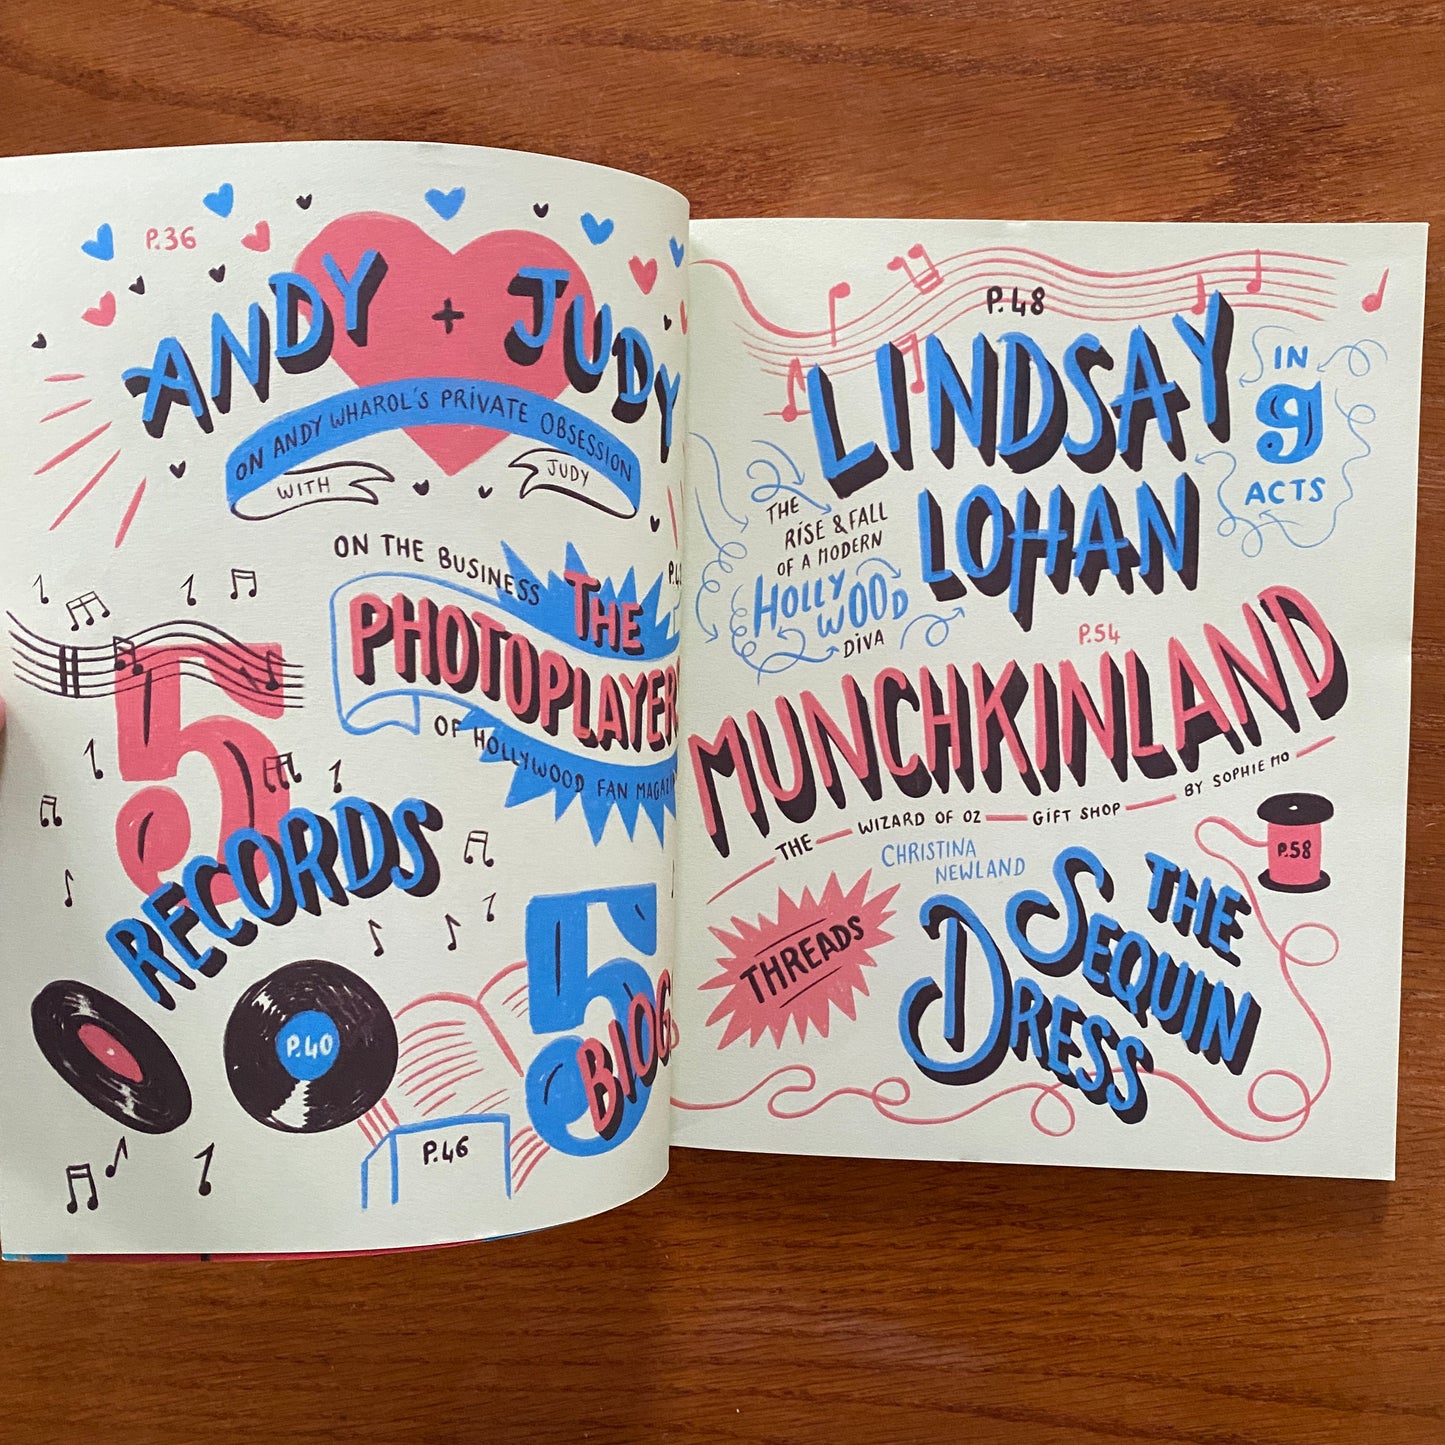 P.36
ANDY + JUDY
ON ANDY WHAROL'S PRIVATE OBSESSION
WITH JUDY
ON THE BUSINESS
THE
PHOTOPLAYER
OF HOLLYWOOD FAN
5
RECORDS
P.40
5
BLOGS
P.46
P.48
LINDSAY
LOHAN
IN
9
ACTS
THE
RISE & FALL
OF A MODERN
HOLLY
WOOD
DIVA
P.54
MUNCHKINLAND
THE WIZARD OF OZ GIFT SHOP BY SOPHIE MO
CHRISTINA
NEWLAND
THREADS
THE
SEQUIN
DRESS
P.58